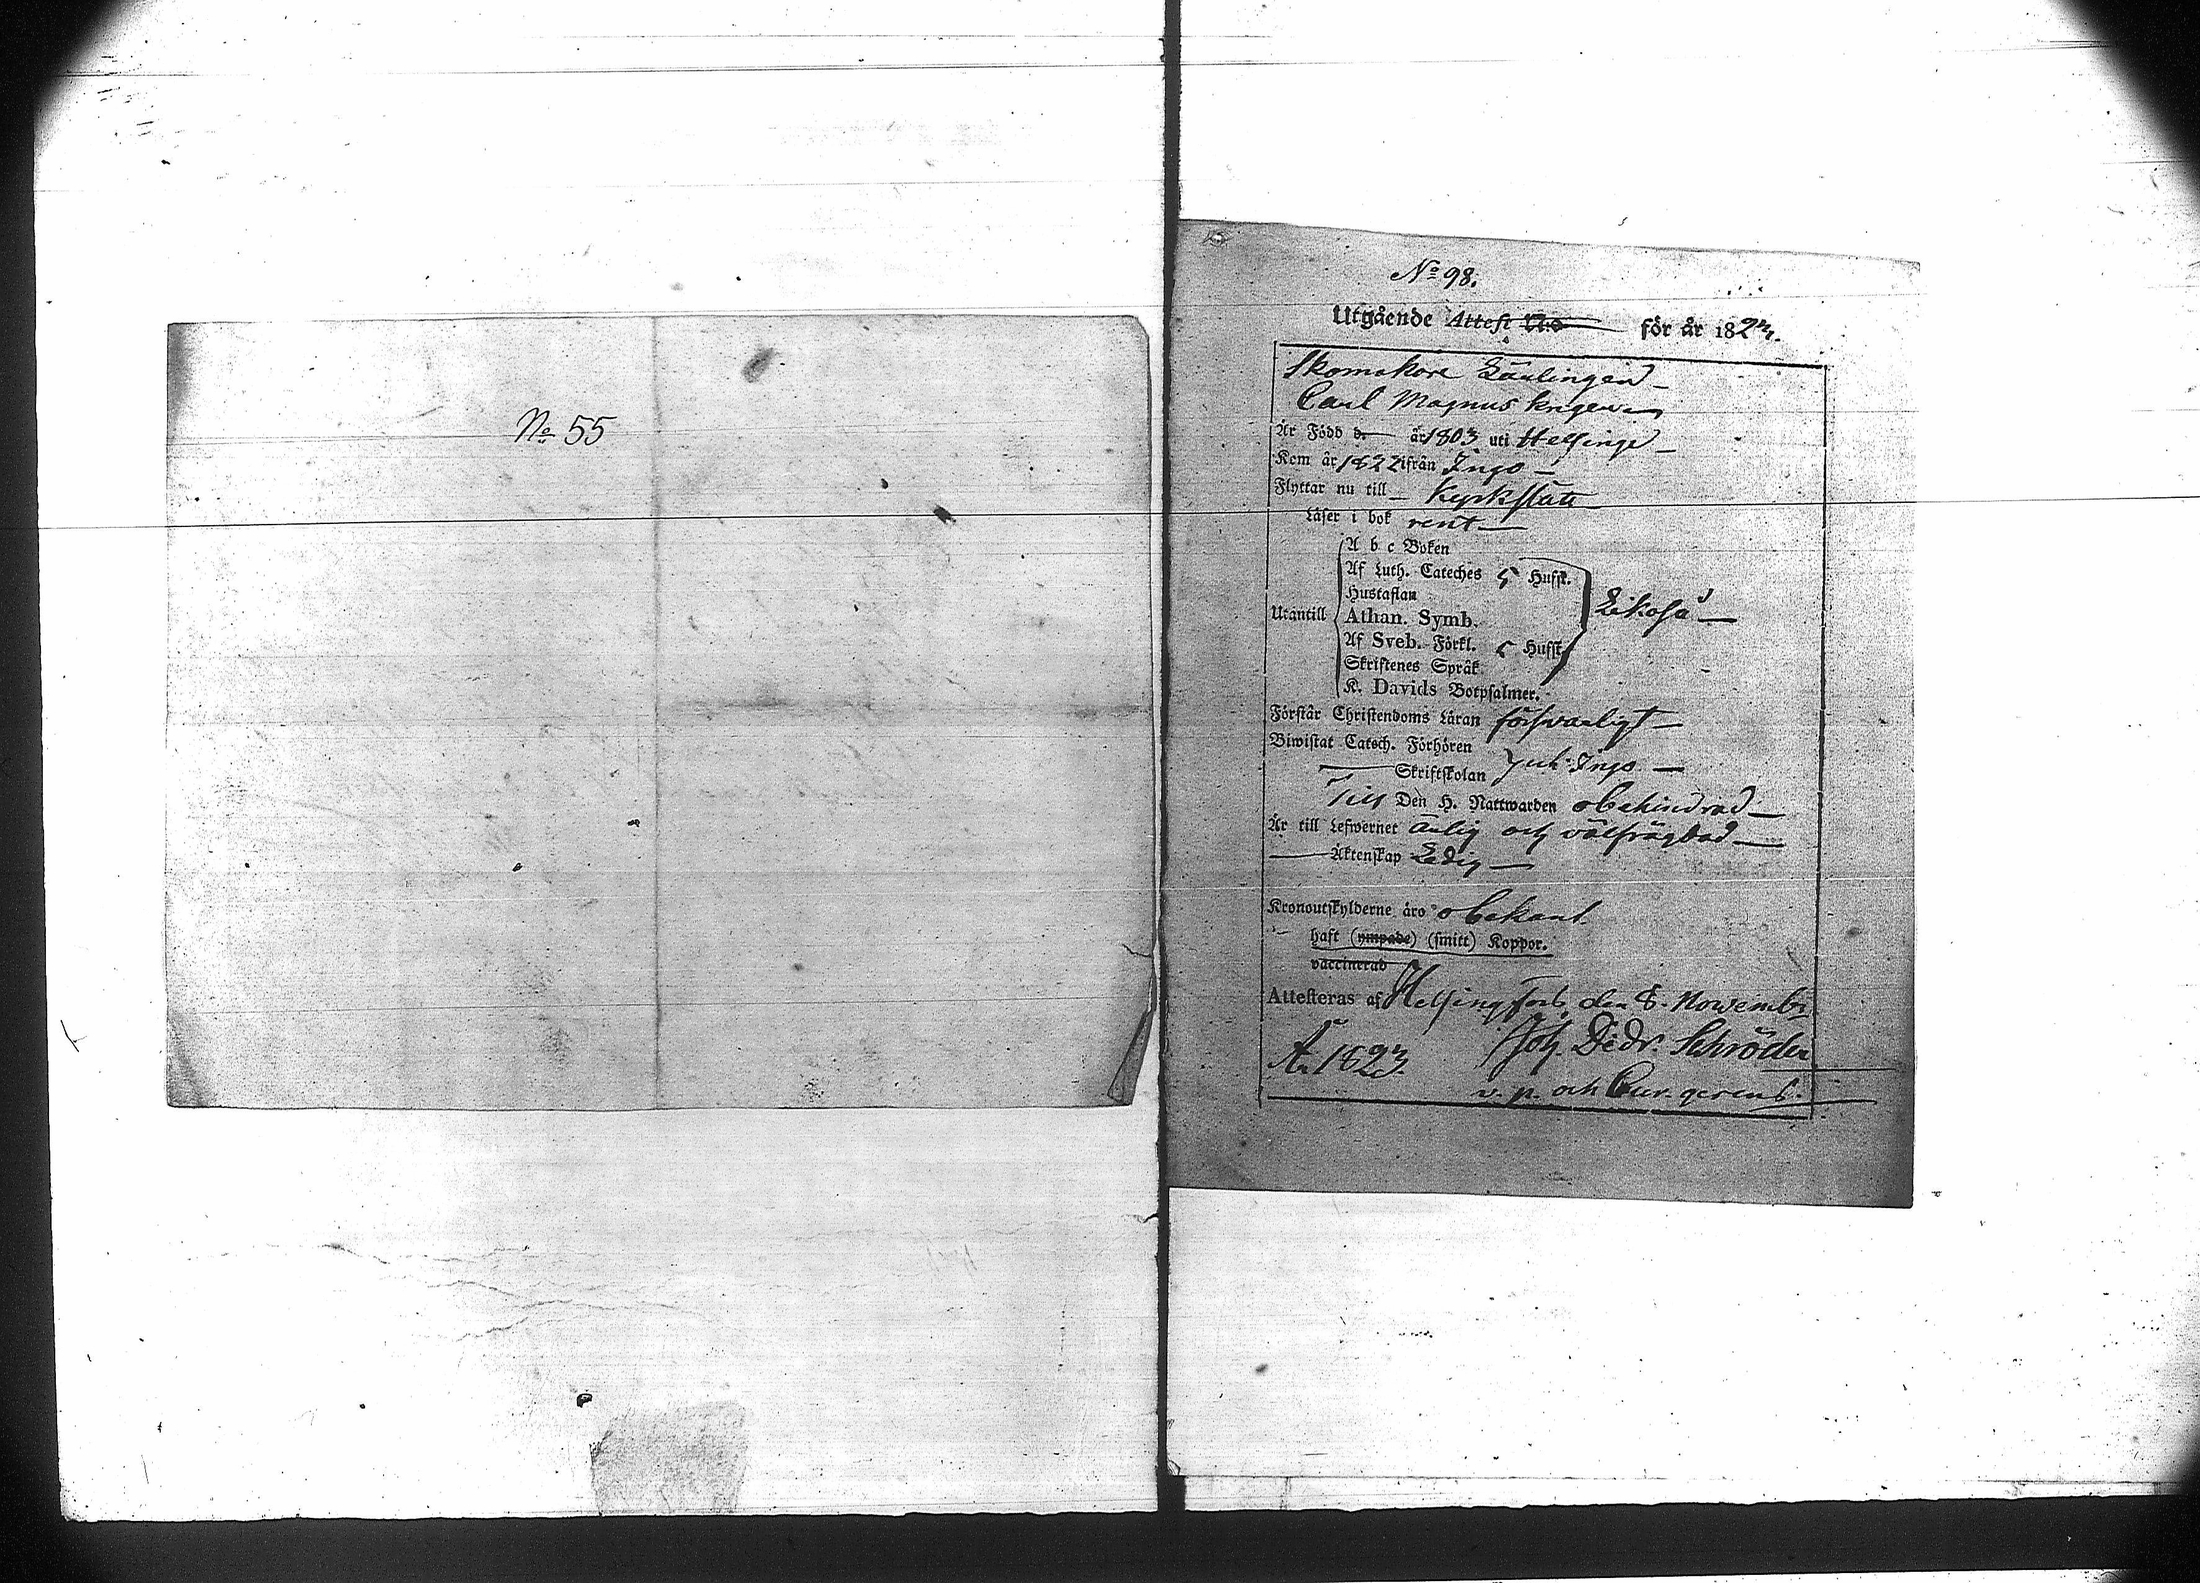 No 55
No 98.
Utgående Attest No för år 1823.
Skomakare Lärlingen
Carl Magnus
Är Född d. år 1803 uti Helsinge
Kom år 1822 ifrån Ingo
Flyttar nu till Kyrkslätt
Läser i bok rent
Utantill
A b c Boken
Af Luth. Cateches 5 Hufst.
Hustaflan
Athan. Symb.
Af Sveb. Förkl. 5 Hufst.
Skriftenes Språk
K. Davids Botpsalmer.
Likaså
Förstår Christendoms Läran försvarligt
Biwistat Catech. Förhören
Skriftskolan Ingo
Till Den H. Nattwarden obehindrad
Är till Lefwernet ärlig och välfrägdad
Äktenskap Ledig
Kronoutskylderne äro obekant
haft (ympade) (smitt) Koppor.
vaccinerad
Attesteras af Helsingfors, den 8. Novembr
År 1823. Joh. Dedr. Schröder
v. p. och Cur. gerens.